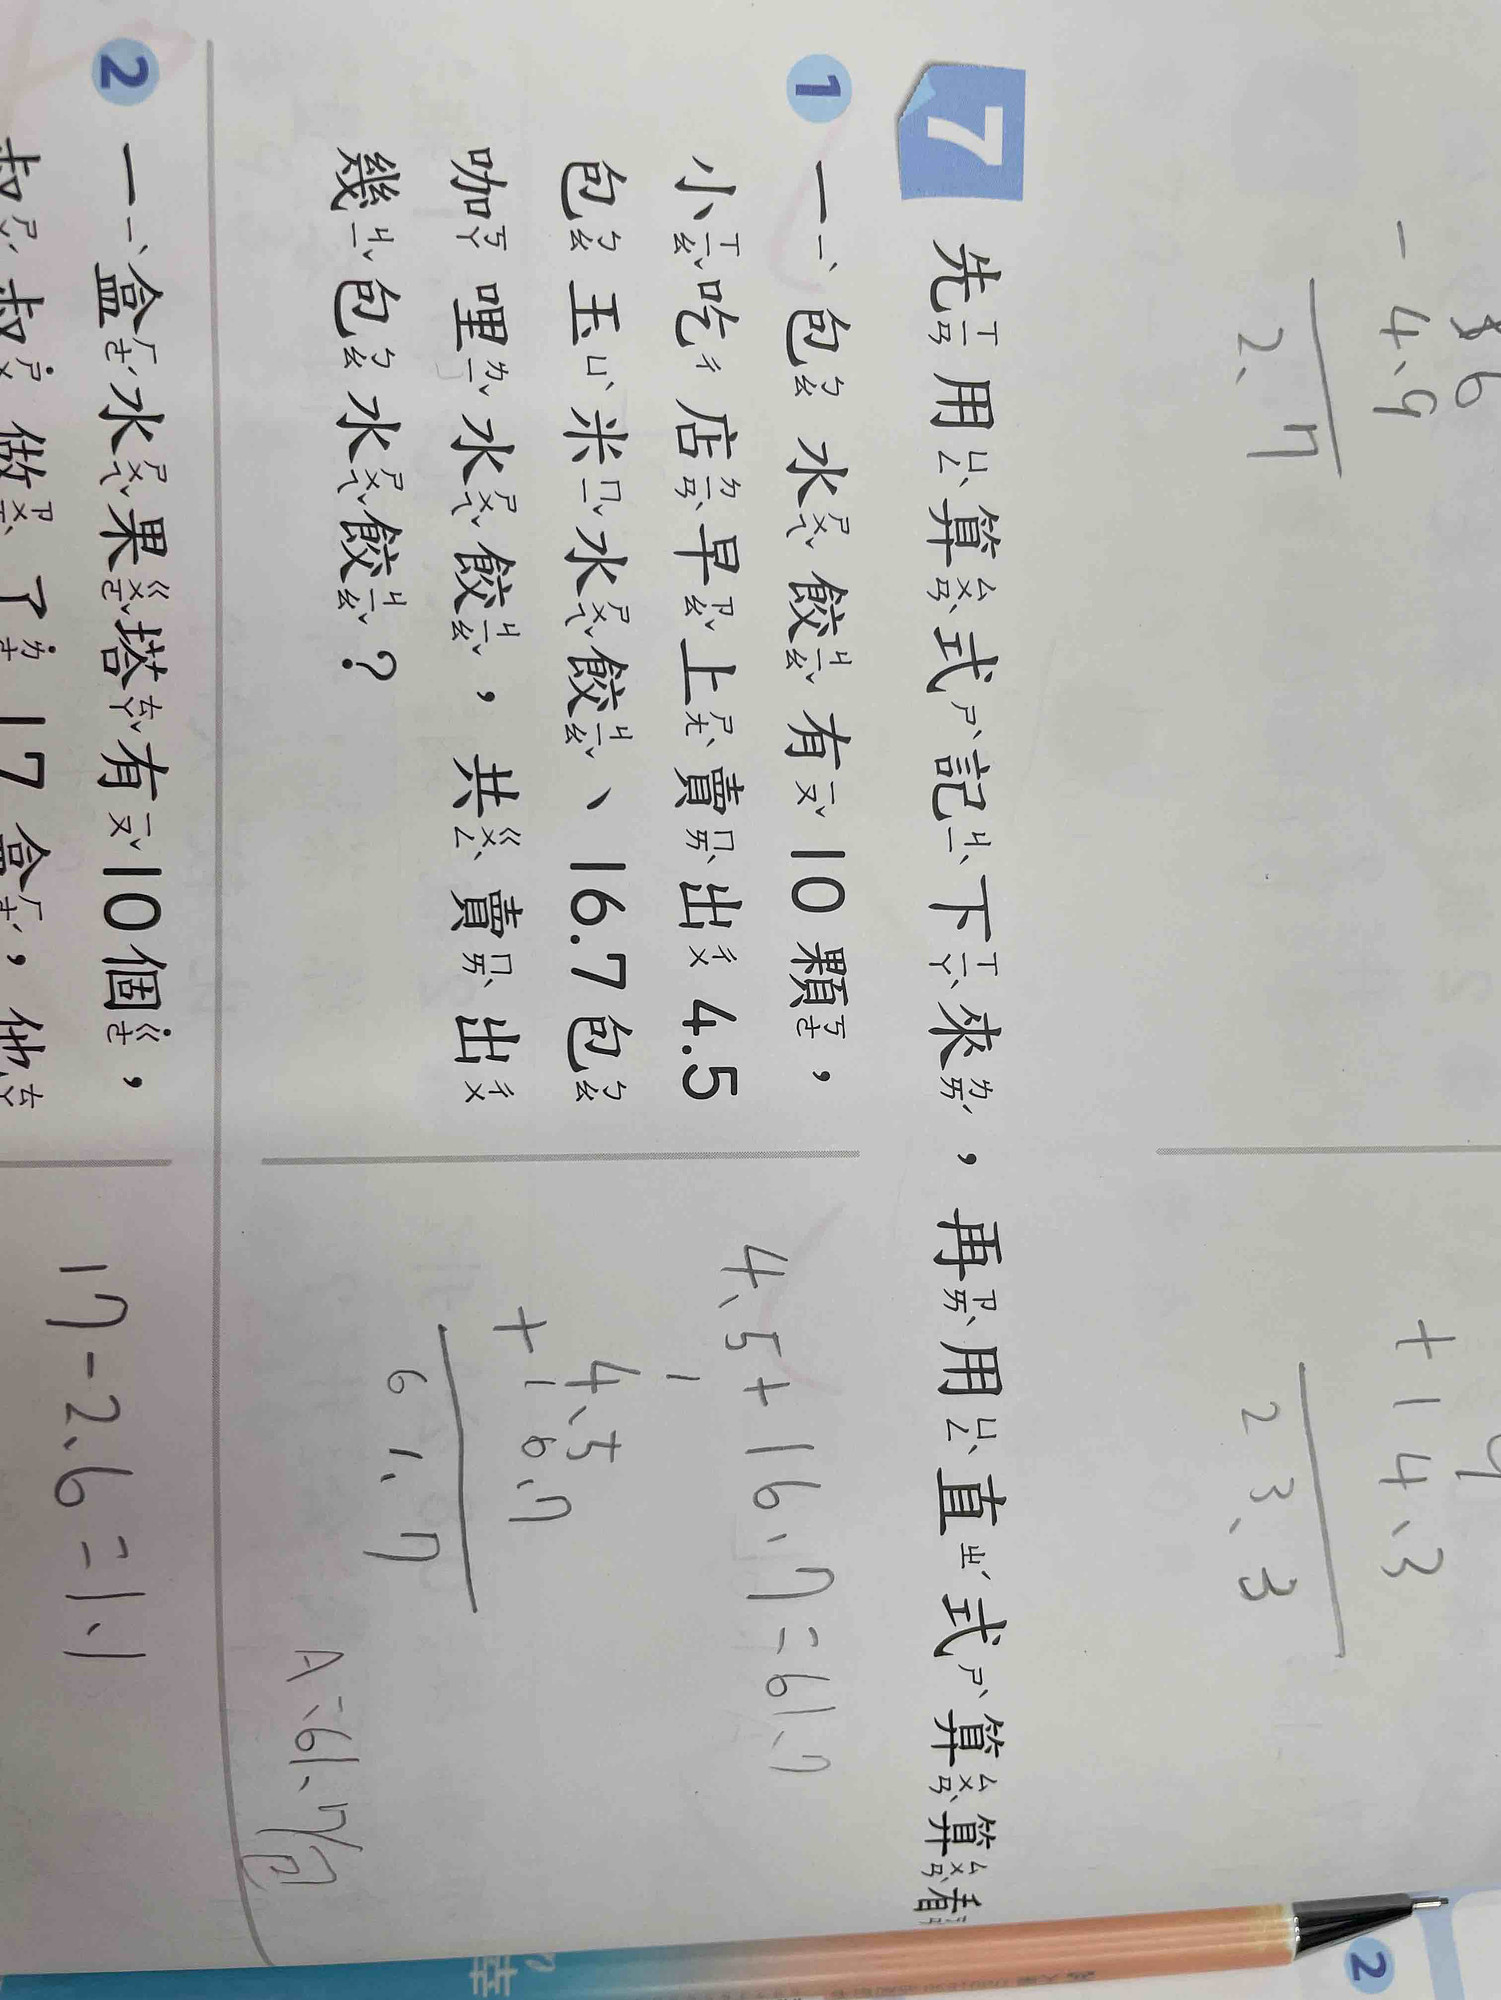 86
- 4.9
2.7
+ 14.3
23.3
7 先用算式記下來，再用直式算算看
1 一包水餃有10顆，
小吃店早上賣出4.5
包玉米水餃、16.7包
咖哩水餃，共賣出
幾包水餃？
4.5+16.7=61.7
1
4.5
+ 16.7
61.7
A:61.7包
2 一盒水果塔有10個，
叔叔做了17盒，他
17-2.6=1.1
2